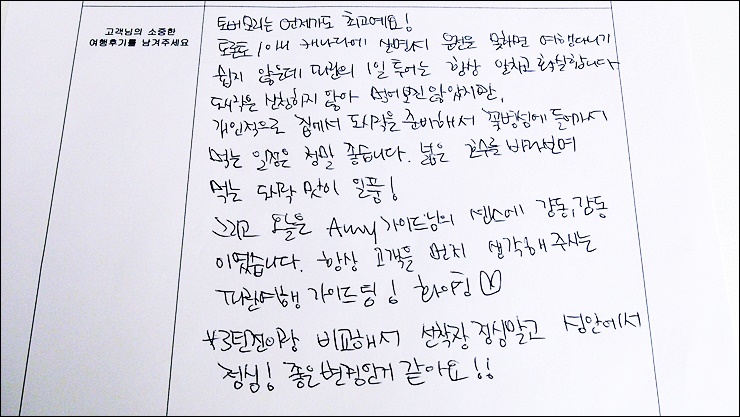 고객님의 소중한
여행후기를 남겨주세요
토버모리는 언제가도 최고예요!
토론토 / 아니 캐나다에 살면서 운전을 못하면 여행다니기
쉽지 않은데 파란의 1일 투어는 항상 알차고 확실합니다
도시락을 신청하지 않아 먹어보진 않았지만,
개인적으로 집에서 도시락을 준비해서 꽃병섬에 들어가서
먹는 일정은 정말 좋습니다. 넓은 호수를 바라보며
먹는 도시락 맛이 일품!
그리고 오늘은 Amy 가이드님의 센스에 감동, 감동
이였습니다. 항상 고객을 먼저 생각해 주시는
파란여행 가이드팀! 화이팅
*3탄진이랑 비교해서 선착장 점심말고 섬안에서
점심! 좋은현정인거 같아요!!